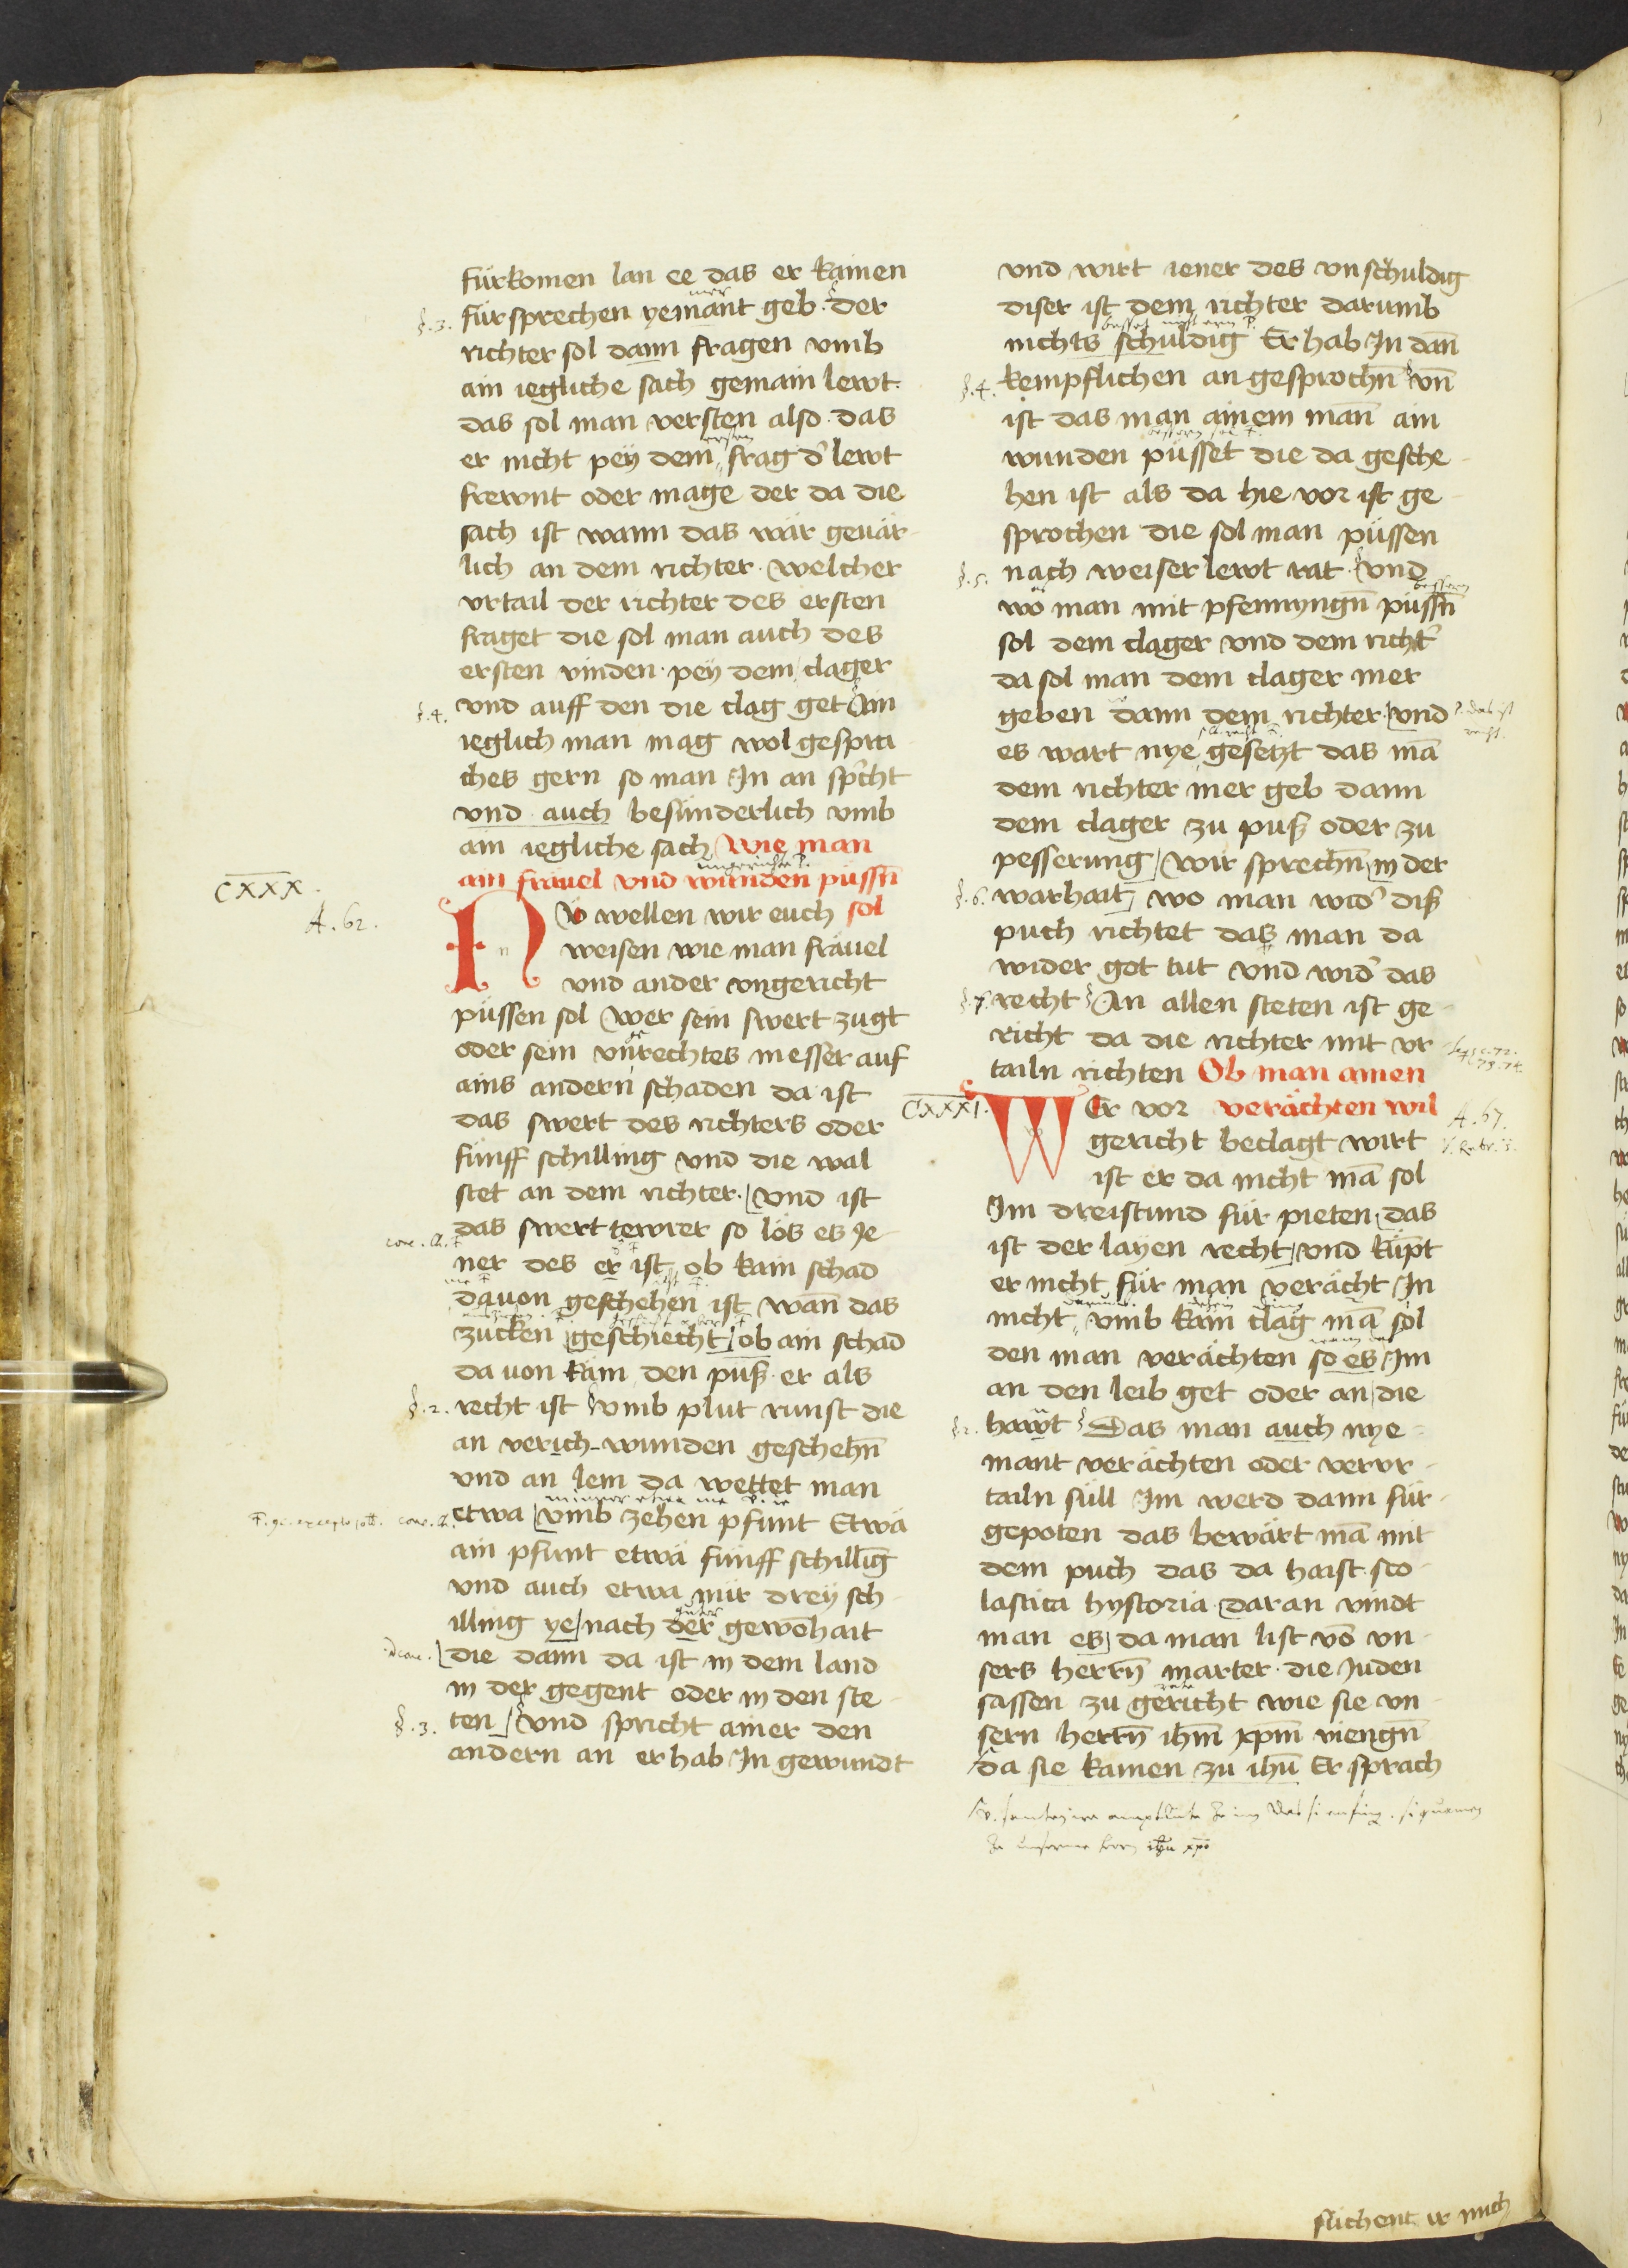 fürkomen lan ee das er kainen
fürsprechen yemant geb. der
§.3.
richter sol dann fragen vmb
ain iegliche sach gemain lewt.
das sol man versten also. das
er nicht peÿ dem frag d' lewt
frewnt oder mage der da die
sach ist wann das wär geuär-
lich an dem richter. welcher
vrtail der richter des ersten
fraget die sol man auch des
ersten vinden. peÿ dem clager
vnd auff den die clag get Ain
§.4.
ieglich man mag wol gespra
ches gern so man In an sp'cht
vnd auch besünderlich vmb
ain iegliche sach Wie man
ain fräuel vnd wunden püssn̄ sol
CXXX.
A. 62.
NV wellen wir euch
weisen wie man fräuel
vnd ander vngericht
püssen sol Wer sein swert zugt
oder sein vnrechtes messer auf
ains andern schaden da ist
das swert des richters oder
fünff schilling vnd die wal
stet an dem richter. Vnd ist
das swert tewrer so lös es Je-
ner des er ist ob kain schad
dauon geschehen ist wan̄ das
zucken geschiecht ob ain schad
da uon käm den puß er als
recht ist Vmb plut runst die
§.2.
an verich-wunden geschehn̄
vnd an lem da wettet man
etwa vmb zehen pfunt Etwa
ain pfunt etwa fünff schillīg
vnd auch etwa nür dreÿ sch
illing ye nach der gewōhait
die dann da ist in dem land
in der gegent oder in den ste-
ten Vnd spricht ainer den
§.3.
andern an er hab In gewundt
vnd wirt iener des vnschuldig
diser ist dem richter darumb
nichts schuldig Er hab In dan̄
kempflichen an gesprochn̄ Vn̄
§.4.
ist das man ainem man̄ ain
wunden püsset die da gesche-
hen ist als da hie vor ist ge-
sprochen die sol man püssen
nach weiser lewt rat. Vnd
§.5.
wo man mit pfennyngn̄ püssn̄
sol dem clager vnd dem richt'
da sol man dem clager mer
geben dann dem richter Vnd
es wart nye gesetzt das mā
dem richter mer geb dann
dem clager zu puß oder zu
pesserung Wir sprechn̄ in der
warhait wo man wid' diß
§.6.
puch richtet das man da
wider got tut vnd wid' das
recht An allen steten ist ge-
§.7.
richt da die richter mit vr
tailn richten Ob man ainen
verächten wil
CXXXI.
A. 67.
WEr vor
gericht beclagt wirt
ist er da nicht mā sol
Im dreistund für pieten das
ist der laÿen recht vnd kūpt
er nicht für man verächt In
nicht vmb kain clag mā sol
den man verächten so es Im
an den leib get oder an die
hawt Das man auch nye-
§.2.
mant verächten oder vervr-
tailn süll Im werd dann für-
gepoten das bewärt mā mit
dem puch das da haist. sco-
lastica hystoria. daran vindt
man es da man list vō vn-
sers herrn̄ marter. die Juden
sassen zu gericht wie sie vn
sern herrn̄ ihm̄ xpm̄ viengn̄
da sie kamen zu ihū Er sprach
suchent ir mich